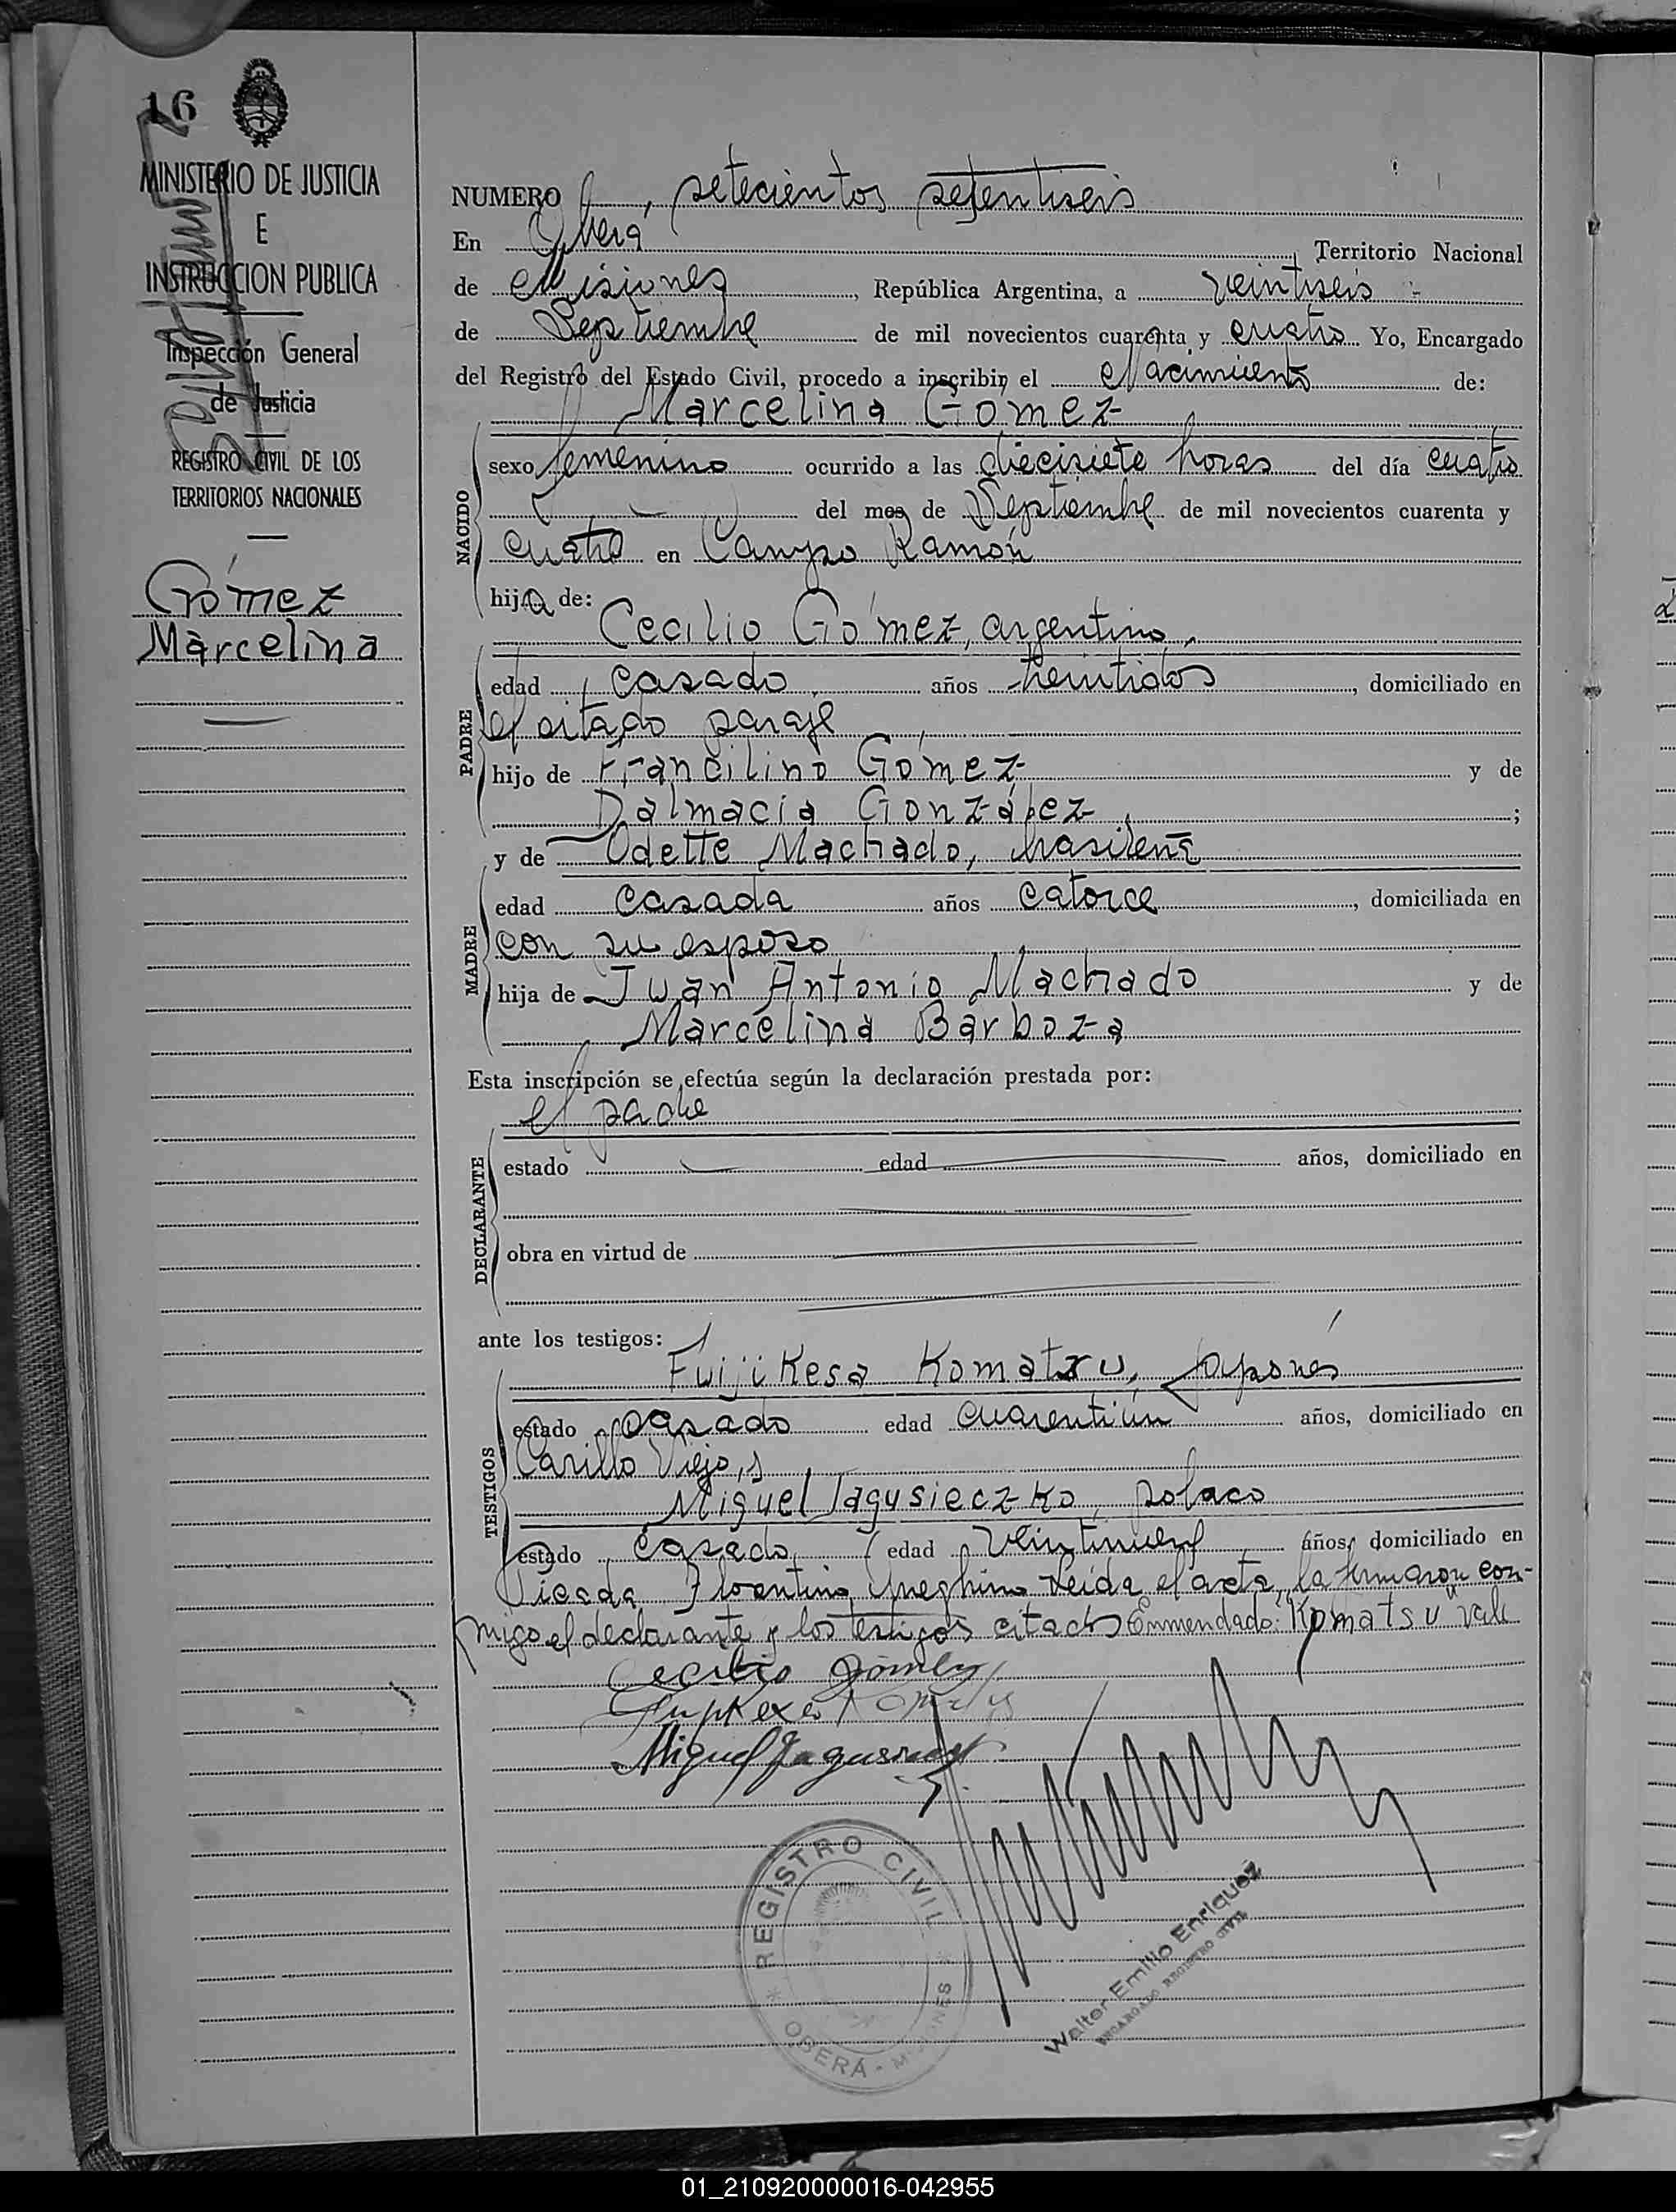 16
MINISTERIO DE JUSTICIA
E
INSTRUCCION PUBLICA
Inspección General
de Justicia
REGISTRO CIVIL DE LOS
TERRITORIOS NACIONALES
Gómez
Marcelina
NUMERO setecientos setentiseis
En Oberá, Territorio Nacional
de Misiones, República Argentina, a veintiseis
de Septiembre de mil novecientos cuarenta y cuatro Yo, Encargado
del Registro del Estado Civil, procedo a inscribir el Nacimiento de:
Marcelina Gómez
NACIDO
sexo femenino ocurrido a las diecisiete horas del día cuatro
del mes de Septiembre de mil novecientos cuarenta y
cuatro en Campo Ramón
hija de:
Cecilio Gómez, argentino,
PADRE
edad casado, años treintidos, domiciliado en
el citado paraje
hijo de Francilino Gómez y de
Dalmacia González;
y de Odette Machado, brasileña
MADRE
edad casada años catorce, domiciliada en
con su esposo
hija de Juan Antonio Machado y de
Marcelina Barboza
Esta inscripción se efectúa según la declaración prestada por:
el padre
DECLARANTE
estado edad años, domiciliado en
obra en virtud de
ante los testigos:
Fujikesa Komatsu, japonés
TESTIGOS
estado casado edad cuarentiún años, domiciliado en
Carillo Viejo, y
Miguel Jagusieczko, polaco
estado casado, edad veintinueve años, domiciliado en
Picada Florentino Ameghino Leída el acta, la firmaron con-
migo el declarante y los testigos citados Enmendado: "Komatsu" vale
Cecilio Gómez
Miguel
REGISTRO CIVIL
OBERÁ - MISIONES
Walter Emilio Enriquez
ENCARGADO REGISTRO CIVIL
01_210920000016-042955